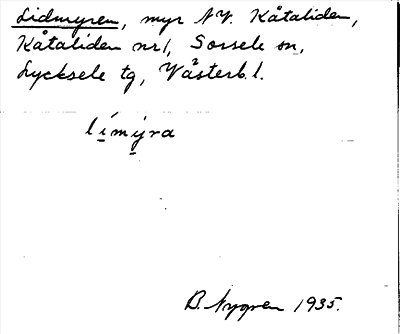 Lidmyren, myr NV. Kåtaliden,
Kåtaliden nr 1, Sorsele sn,
Lycksele tg, Västerb. l.
límýra
B. Nygren 1935.